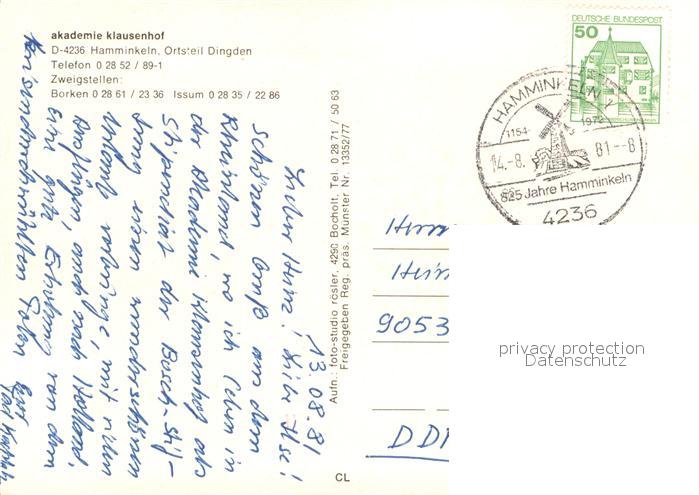 akademie klausenhof
D-4236 Hamminkeln, Ortsteil Dingden
Telefon 0 28 52 / 89-1
Zweigstellen:
Borken 0 28 61 / 23 36 Issum 0 28 35 / 22 86
DEUTSCHE BUNDESPOST
50
HAMMINKELN 1
1154- 1979
14.-8. 81.--8
825 Jahre Hamminkeln
4236
13.08.81
Lieber Heinz! Liebe Ilse!
schönen Gruß aus dem
Rheinland, wo ich Lehrer in
der Akademie Klausenhof als
Stipendiat der Bosch-Stif-
tung einen wunderschönen
Urlaub verbringe, mit vielen
Ausflügen, auch nach Holland,
eine gute Erholung von dem
Aufn.: foto-studio rösler, 4290 Bocholt, Tel. 0 28 71 / 50 63
Freigegeben Reg. präs. Münster Nr. 13352/77
CL
Herrn
Hein
9053
DDR
privacy protection
Datenschutz